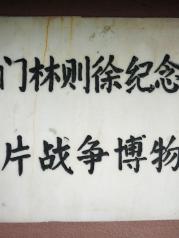 门林则徐纪念
片战争博物